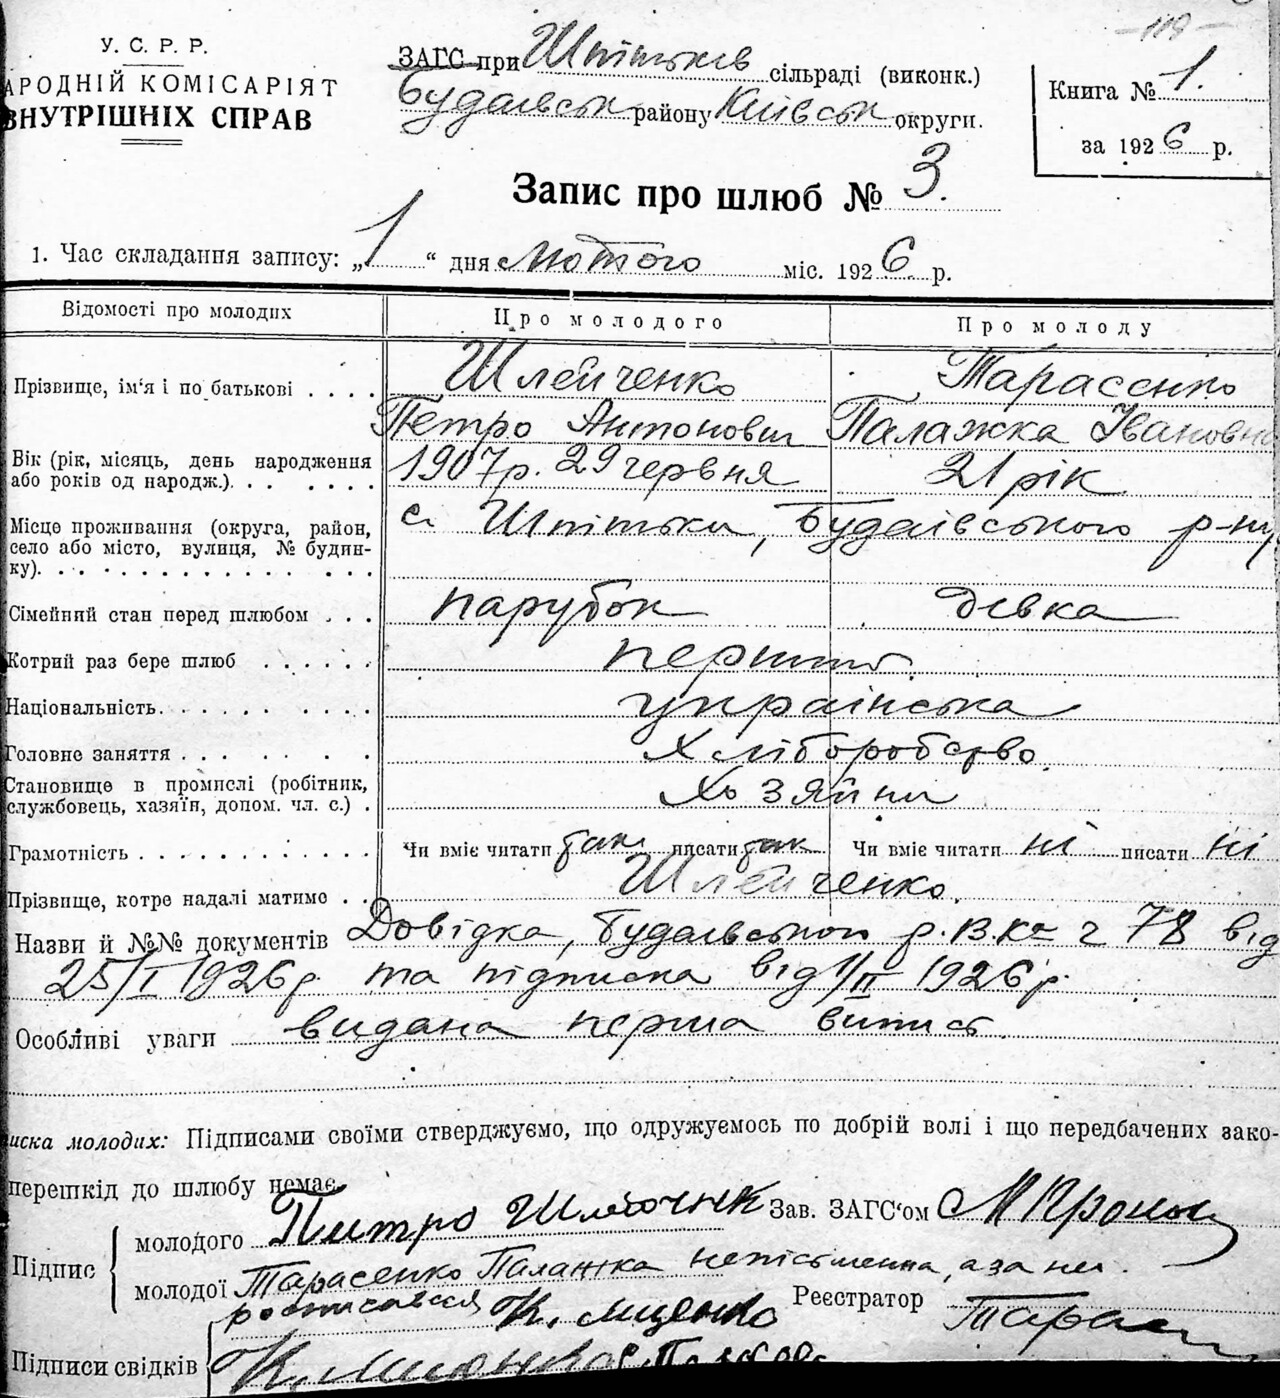 -119-
У. С. Р. Р.
АРОДНІЙ КОМІСАРІЯТ
ВНУТРІШНІХ СПРАВ
ЗАГС при Шпітьків сільраді (виконк.)
Будаївськ району Київськ округи.
Книга № 1.
за 1926 р.
Запис про шлюб № 3.
1. Час складання запису: „1“ дня лютого міс. 1926 р.
Відомості про молодих Про молодого Про молоду
Прізвище, ім'я і по батькові . . . . Шлейченко Тарасенко
Петро Антонович Палажка Івановна
Вік (рік, місяць, день народження або років од народж.). . . . . . . 1907 р. 29 червня 21 рік
Місце проживання (округа, район, село або місто, вулиця, № будинку). с. Шпітьки, Будаївського р-ну
Сімейний стан перед шлюбом . . . парубок дівка
Котрий раз бере шлюб . . . . . . перший
Національність. . . . . . . . . українська
Головне заняття . . . . . . . . Хліборобство
Становище в промислі (робітник, службовець, хазяїн, допом. чл. с.) . Хозяїни
Грамотність . . . . . . . . . . Чи вміє читати так писати так Чи вміє читати ні писати ні
Прізвище, котре надалі матиме . . Шлейченко.
Назви й №№ документів Довідка, Будаївського р.в.к. ч 78 від
25/I 1926 р та підписка від 1/II 1926 р.
Особливі уваги видана перша випись
иска молодих: Підписами своїми стверджуємо, що одружуємось по добрій волі і що передбачених зако-
перешкід до шлюбу немає
Підпис молодого Питро Зав. ЗАГС'ом
молодої Тарасенко Палажка неписьменна, а за неї
росписався К. Реєстратор
Підписи свідків К.